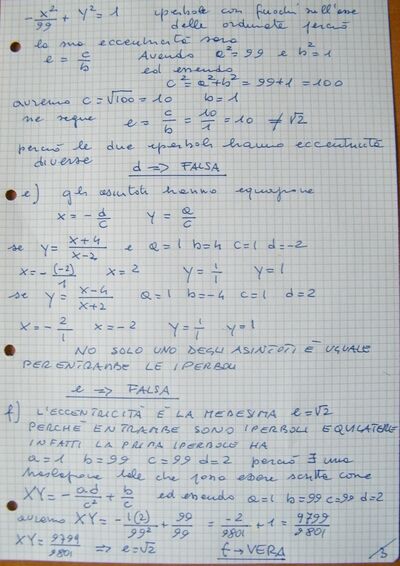 -x²/99 + y² = 1 iperbole con fuochi sull'asse
delle ordinate perciò
la sua eccentricità sarà
e = c/b Avendo a² = 99 e b² = 1
ed essendo
c² = a² + b² = 99 + 1 = 100
avremo c = √100 = 10 b = 1
ne segue e = c/b = 10/1 = 10 ≠ √2
perciò le due iperboli hanno eccentricità
diverse
d => FALSA
e) gli asintoti hanno equazione
x = -d/c y = a/c
se y = x+4/x-2 e a = 1 b = 4 c = 1 d = -2
x = -(-2)/1 x = 2 y = 1/1 y = 1
se y = x-4/x+2 a = 1 b = -4 c = 1 d = 2
x = -2/1 x = -2 y = 1/1 y = 1
NO SOLO UNO DEGLI ASINTOTI È UGUALE
PER ENTRAMBE LE IPERBOLI
e => FALSA
f) L'ECCENTRICITÀ È LA MEDESIMA e = √2
PERCHÉ ENTRAMBE SONO IPERBOLI EQUILATERE
INFATTI LA PRIMA IPERBOLE HA
a = 1 b = 99 c = 99 d = 2 perciò ∃ una
traslazione tale che possa essere scritta come
XY = -ad/c² + b/c ed essendo a = 1 b = 99 c = 99 d = 2
avremo XY = -1(2)/99² + 99/99 = -2/9801 + 1 = 9799/9801
XY = 9799/9801 => e = √2 f => VERA